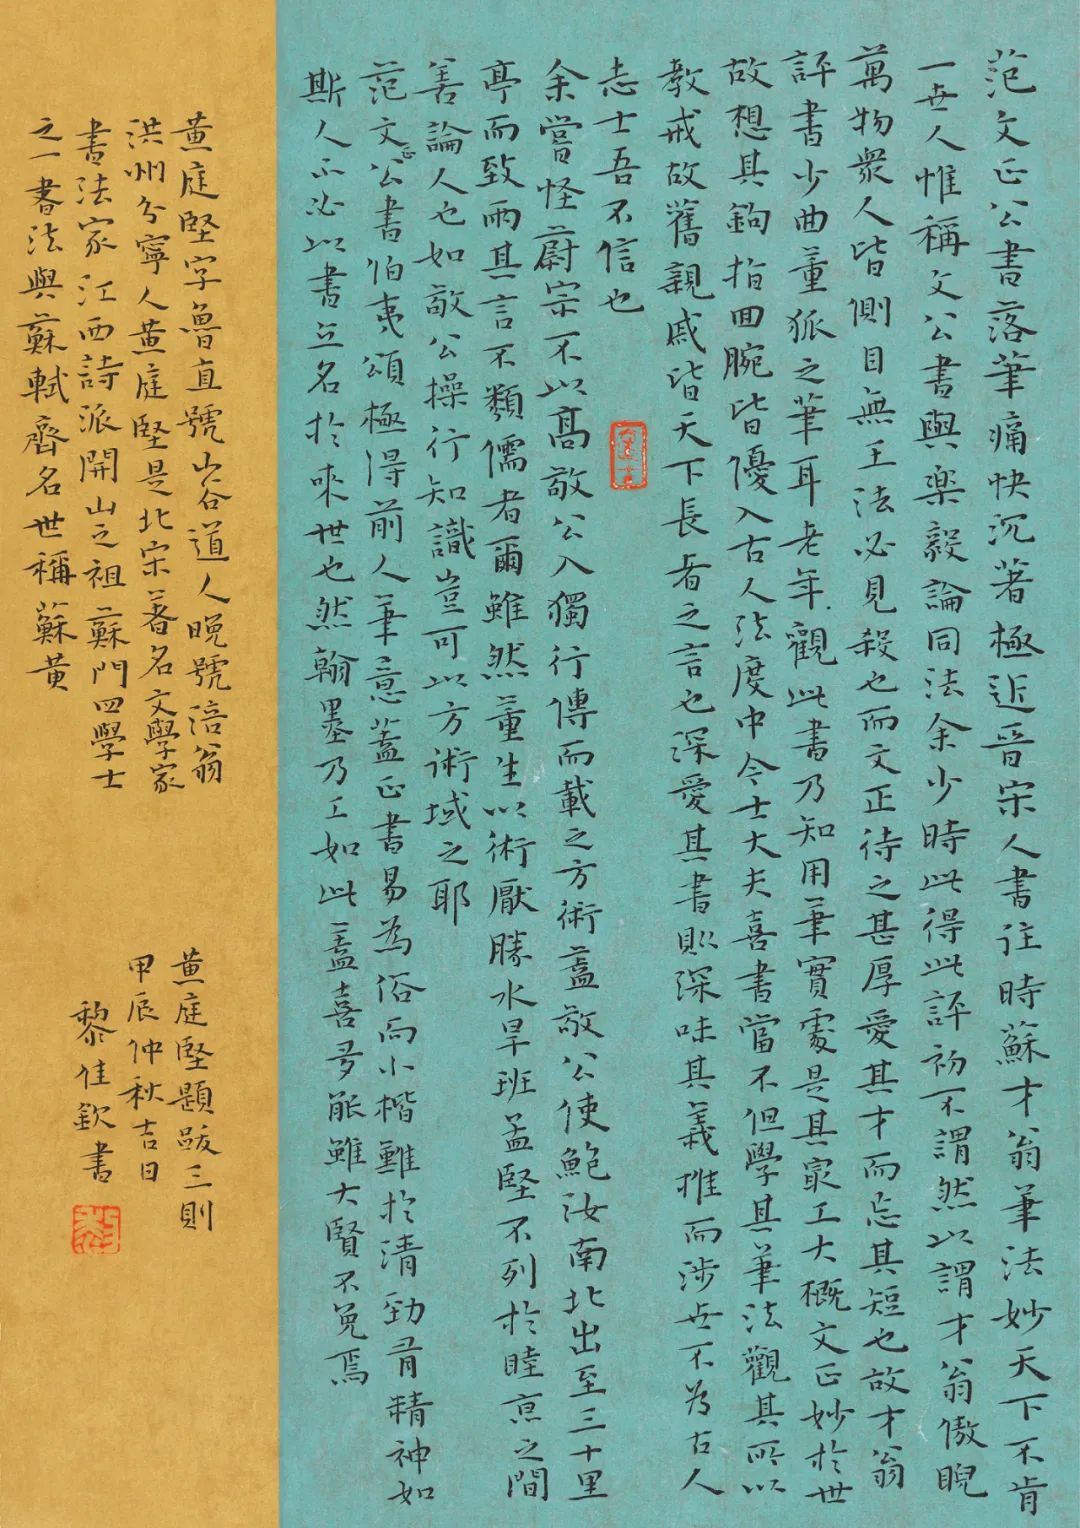 范文正公書落筆痛快沉著極近晉宋人書往時蘇才翁筆法妙天下不肯
一世人惟稱文公書與樂毅論同法余少時此得此評初不謂然以謂才翁傲睨
萬物衆人皆側目無王法必見殺也而文正待之甚厚愛其才而忘其短也故才翁
評書少曲董狐之筆耳老年觀此書乃知用筆實處是其最工大概文正妙於世
故想其鉤指回腕皆優入古人法度中今士大夫喜書當不但學其筆法觀其所以
教戒故舊親戚皆天下長者之言也深愛其書則深味其義推而涉世不為古人
志士吾不信也
余嘗怪蔚宗不以高敬公入獨行傳而載之方術蓋敬公使鮑汝南北出至三十里
亭而致雨其言不類儒者爾雖然董生以術厭勝水旱班孟堅不列於眭京之間
善論人也如敬公操行知識豈可以方術域之耶
范文正公書伯夷頌極得前人筆意蓋正書易為俗而小楷難於清勁有精神如
斯人不必以書立名於來世也然翰墨乃工如此蓋喜多能雖大賢不免焉
黃庭堅字魯直號山谷道人晚號涪翁
洪州分寧人黃庭堅是北宋著名文學家
書法家江西詩派開山之祖蘇門四學士
之一書法與蘇軾齊名世稱蘇黃
黃庭堅題跋三則
甲辰仲秋吉日
黎佳欽書